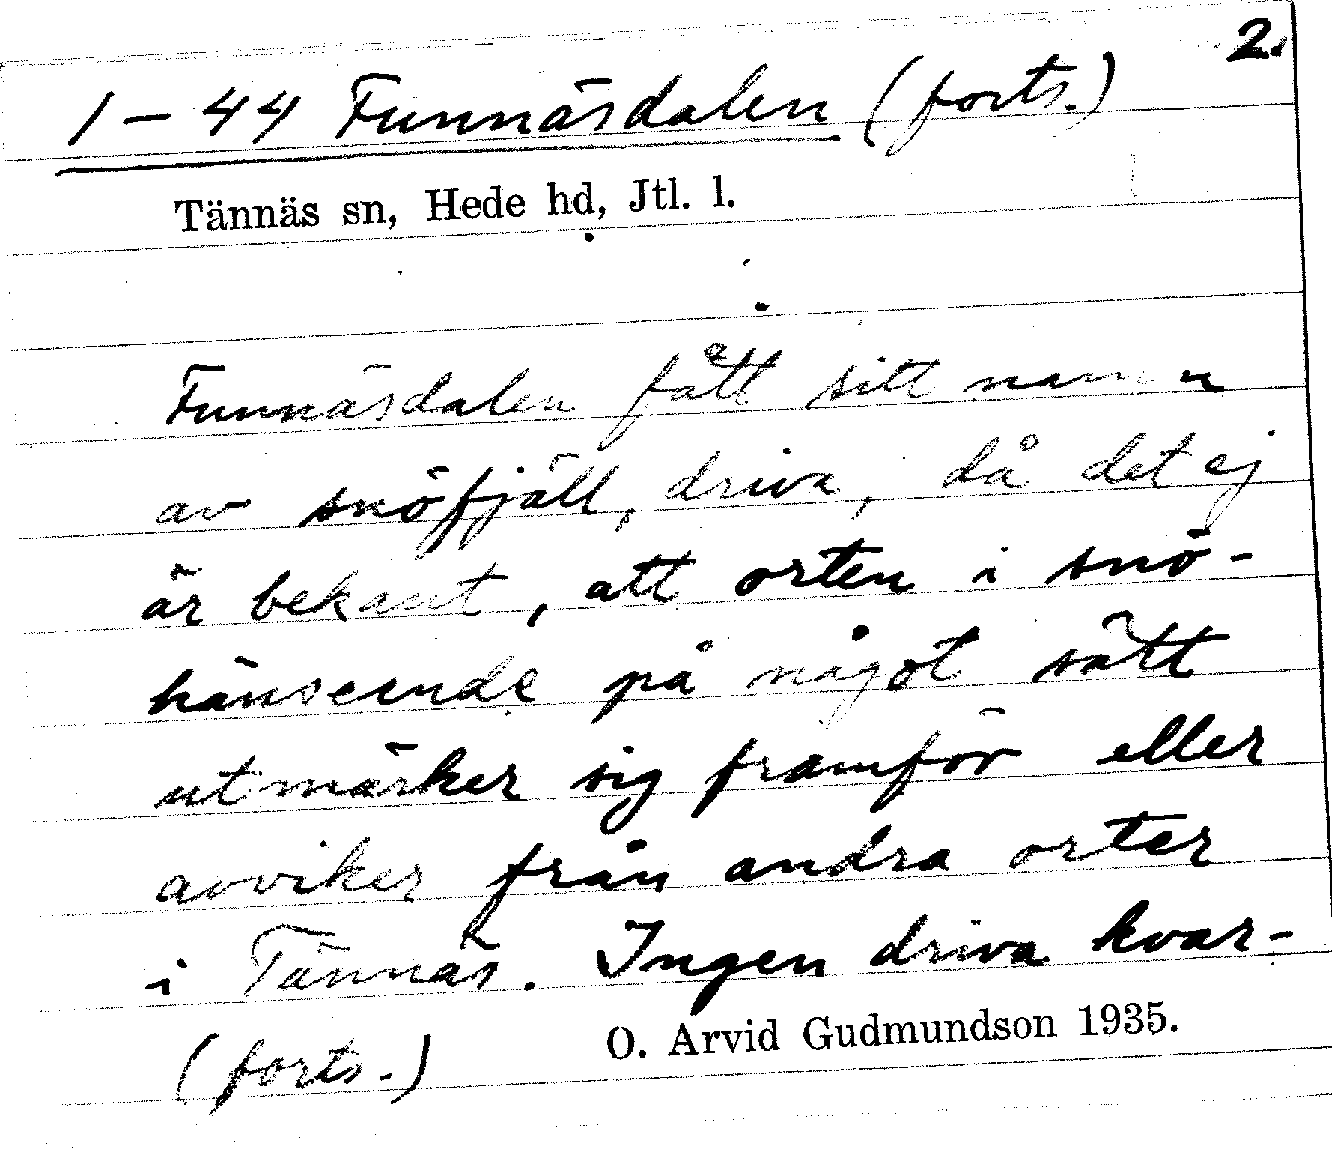 2.
1 - 44 Funnäsdalen (forts.)
Tännäs sn, Hede hd, Jtl. l.
Funnäsdalen fått sitt namn
av snöfjäll, driva, då det ej
är bekant, att orten i snö-
hänseende på något sätt
utmärker sig framför eller
avviker från andra orter
i Tännäs. Ingen driva kvar-
(forts.) O. Arvid Gudmundson 1935.